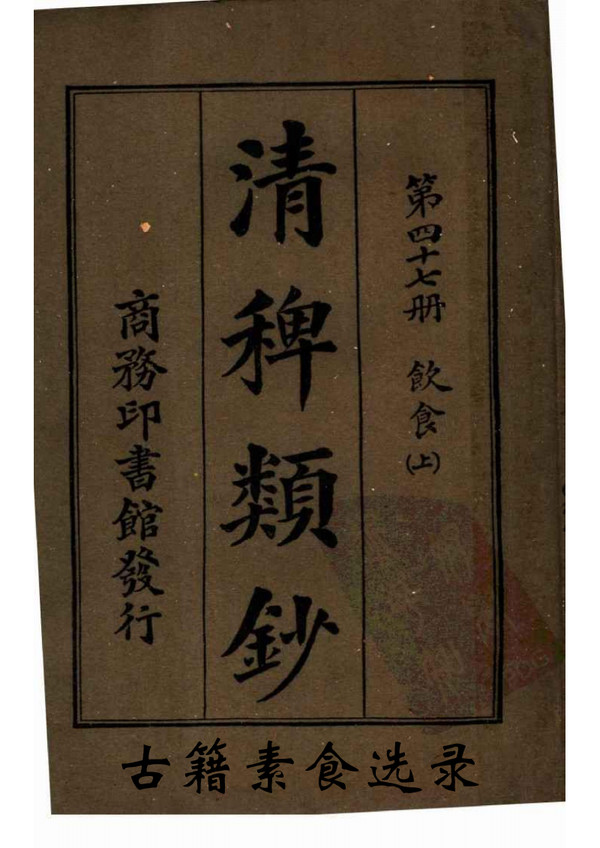 第四十七册 飲食(上)
清稗類鈔
商務印書館發行
古籍素食选录